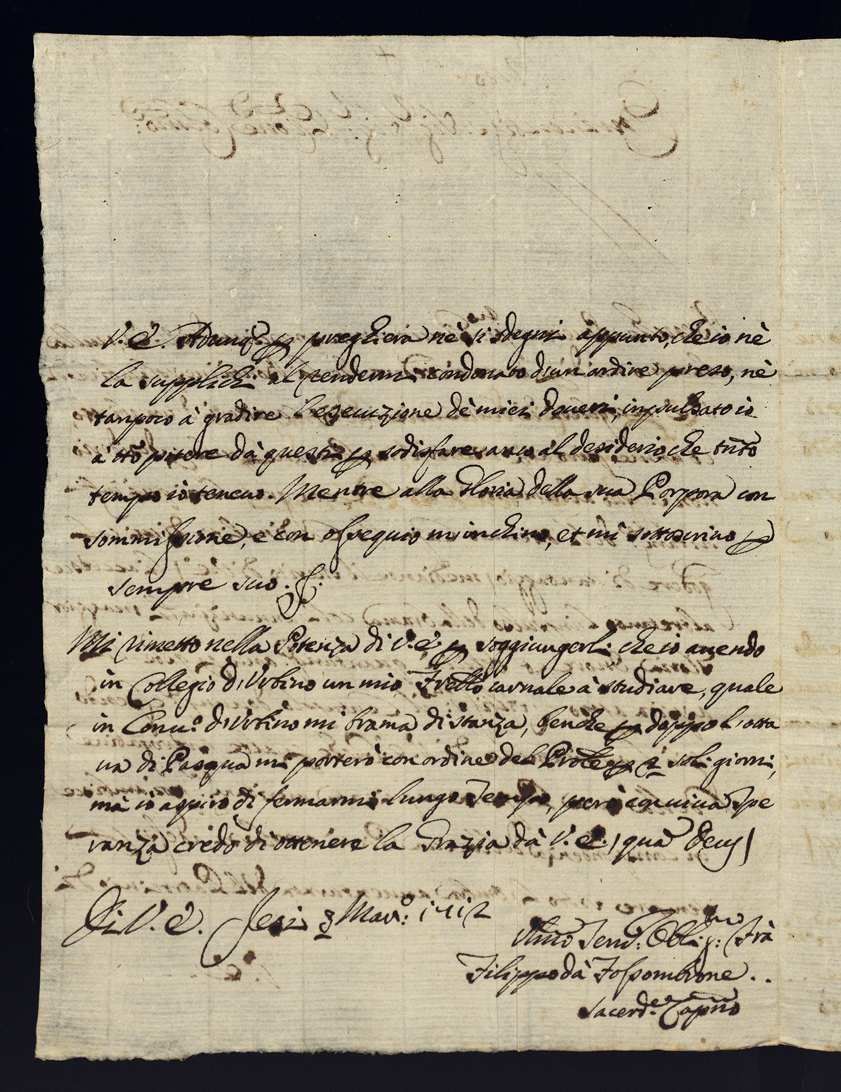 V. E. Adunq. p preghiera nè si sdegni appunto, che io nè
la supplichi al rendermi condonato d'un ardire preso, nè
tampoco à gradire l'esecuzione dè miei doveri, inpulsato io
à tto potere dà questi p sodisfare anco al desiderio che tutto
tempo io tenevo. Mentre alla Gloria della sua Porpora con
sommissione, e con ossequio m'inchino, et mi sottoscrivo p
sempre suo.
Mi rimetto nella Potenza di V. E. p soggiungerli che io avendo
in Collegio d'Urbino un mio Frattlo carnale à studiare, quale
in Conv.o d'Urbino mi brama di stanza, benche p doppo l'otta
va di Pasqua mi porterò con ordine del Prole p soli giorni,
mà io aspiro di fermarmi lungo Tempo, però con viva Spe
ranza credo di ottenere la Grazia dà V. E. (qua Deus)
Di V. E. Jesi 3 Mar.o 1712
Umo Serv. Obblig.mo Frà
Filippo dà Fossombrone..
Sacerd.e Capno